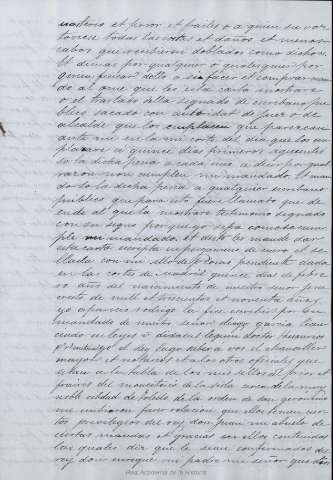 nasterio et prior et frailes o a quien su voz
toviere todas las costas et daños et menos
cabos que recibieren doblados como dicho es
Et demas por qualquier o qualesquier por
quien fincar dello asi facer et complir man
do al ome que les esta carta mostrare
o el traslado della signado de escribano pu
blico sacado con autoridad de juez o de
alcalde que los emplacen que parescan
ante mi en la mi corte del dia que los em
plasare a quince dias primeros siguientes
so la dicha pena a cada uno a decir por qual
razon non cumplen mi mandado. Et man
do so la dicha pena a qualquier escribano
publico que para esto fuere llamado que de
ende al que la mostrare testimonio signado
con su signo porque yo sepa como se cum
ple mi mandado. et desto les mandé dar
esta carta escripta en pergamino de cuero et se
llada con mi sello de plomo pendiente dada
en las cortes de Madrid quince dias de febre
ro año del nascimiento de nuestro señor jesu
cristo de mill et trescientos et noventa años
yo aparicio rodrigo la fice escribir por
mandado de nuestro señor diego garcia licen
ciado en leyes
et yago debaxo a vos el chanciller
mayor et notarios et a los otros oficiales que
estan a la tabla de los mis sellos el prior et
fraires del monesterio de la sisla cerca de la muy
noble cibdad de toledo de la orden de san geronimo
me embiaron facer relacion que ellos tienen cier
tos privilegios del rey don juan mi abuelo de
ciertas mandas et gracias en ellos contenidas
las quales diz que le son confirmados del
rey don enrique mi padre mi señor que dios
Real Academia de la Historia